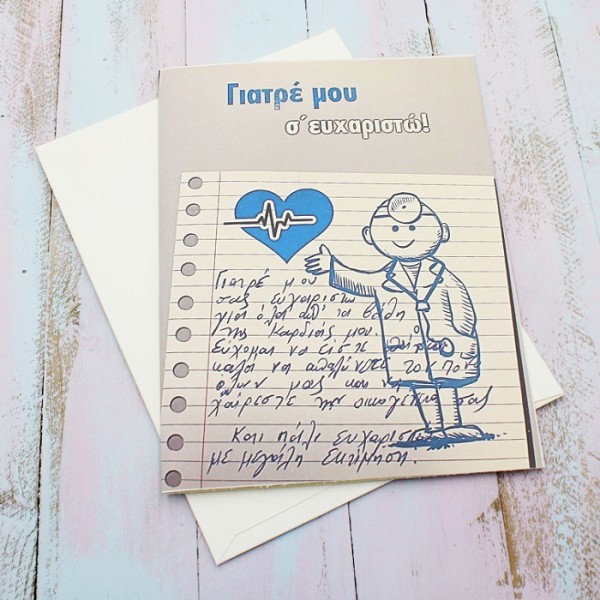 Γιατρέ μου
σ΄ευχαριστώ!
Γιατρέ μου
σας ευχαριστώ
για όλα απ' τα βάθη
της καρδιάς μου.
Εύχομαι να είστε πάντα
καλά να απαλύνετε τον πόνο
όλων μας και να
χαίρεστε την οικογένειά σας
Και πάλι ευχαριστώ
με μεγάλη εκτίμηση.